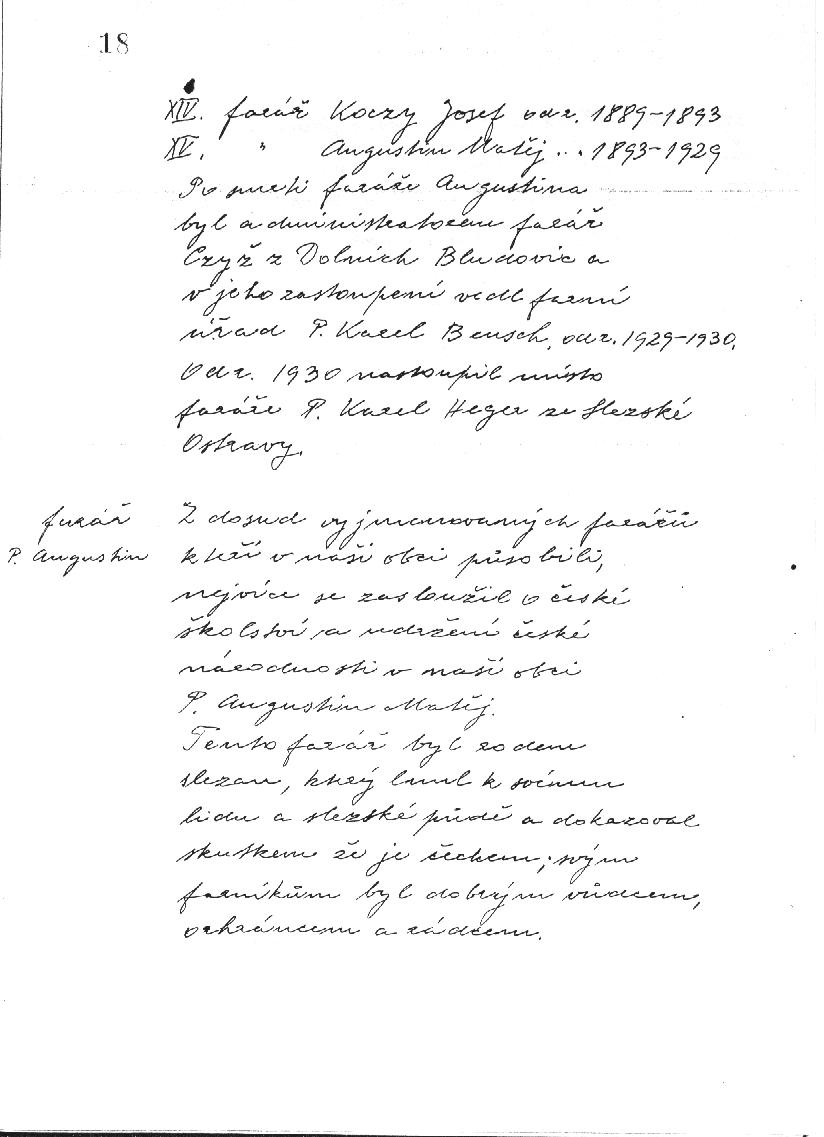 18
XIV. farář Koczy Josef od r. 1889-1893
XV. " Augustin Matěj .. . 1893-1929
Po smrti faráře Augustina
byl administratorem farář
Czyž z Dolních Bludovic a
v jeho zastoupení vedl farní
úřad P. Karel Bensch, od r. 1929-1930.
Od r. 1930 nastoupil místo
faráře P. Karel Heger ze Slezské
Ostravy.
farář
P. Augustin
Z dosud vyjmenovaných farářů
kteří v naší obci působili,
nejvíce se zasloužil o české
školství a udržení české
národnosti v naší obci
P. Augustin Matěj.
Tento farář byl rodem
slezan, který lnul k svému
lidu a slezské půdě a dokazoval
skutkem že je čechem; svým
farníkům byl dobrým vůdcem,
ochráncem a rádcem.